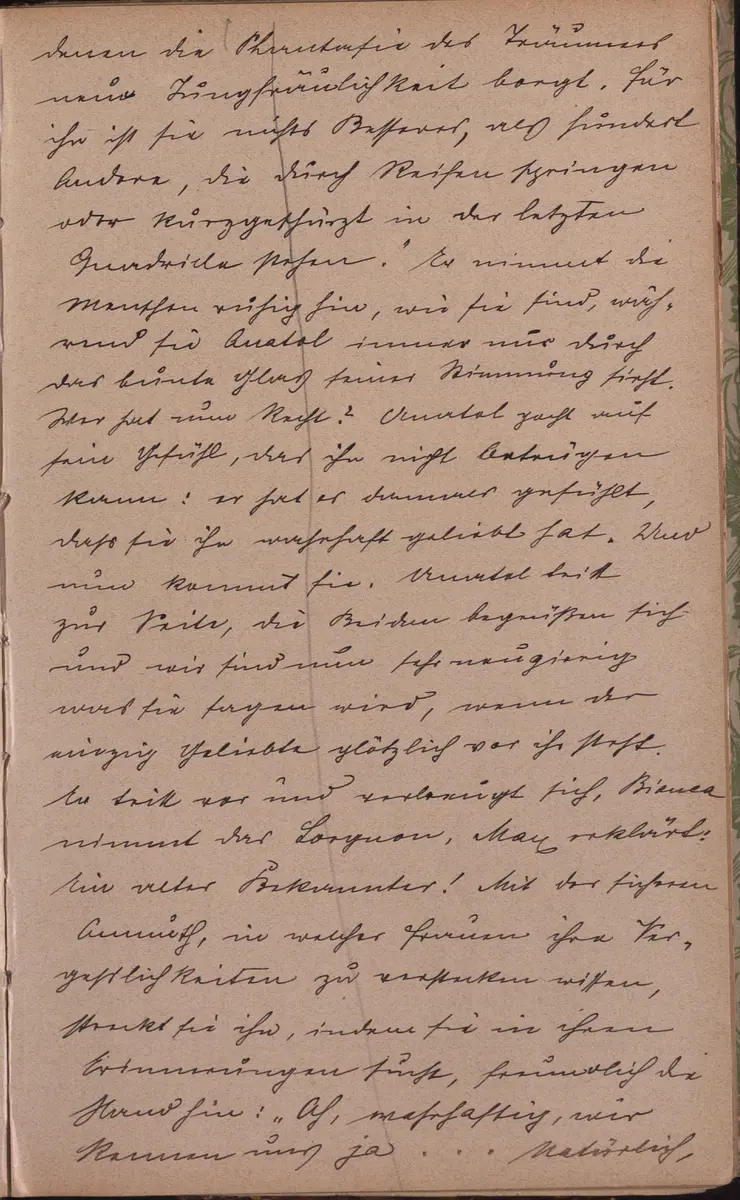 denen die Phantasie des Träumers
neue Jungfräulichkeit borgt. Für
ihn ist sie nichts Besseres, als hundert
Andere, die durch Reifen springen
oder kurzgeschürzt in der letzten
Quadrille stehen." Er nimmt die
Menschen ruhig hin, wie sie sind, wäh-
rend sie Anatol immer nur durch
das bunte Glas seiner Stimmung sieht.
Wer hat nun Recht? Anatol pocht auf
sein Gefühl, das ihn nicht betrügen
kann: er hat es damals gefühlt,
dass sie ihn wahrhaft geliebt hat. Und
nun kommt sie. Anatol tritt
zur Seite, die Beiden begrüßen sich
und wir sind nun sehr neugierig
was sie sagen wird, wenn der
einzig Geliebte plötzlich vor ihr steht.
Er tritt vor und verbeugt sich, Bianca
nimmt das Lorgnon, Max erklärt:
Ein alter Bekannter! Mit der sicheren
Anmuth, in welcher Frauen ihre Ver-
gesslichkeiten zu verstecken wissen,
streckt sie ihm, indem sie in ihren
Erinnerungen sucht, freundlich die
Hand hin: „Ah, wahrhaftig, wir
kennen uns ja . . . Natürlich,